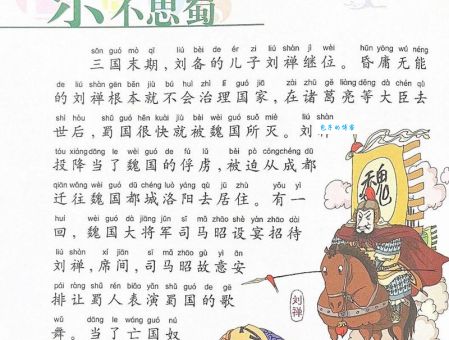 乐不思蜀
sān guó mò qī liú bèi de ér zi liú shàn jì wèi hūn yōng wú néng
三国末期,刘备的儿子刘禅继位。昏庸无能
de liú shàn gēn běn jiù bú huì zhì lǐ guó jiā zài zhū gě liàng děng dà chén qù
的刘禅根本就不会治理国家,在诸葛亮等大臣去
shì hòu shǔ guó hěn kuài jiù bèi wèi guó suǒ miè liú shàn
世后,蜀国很快就被魏国所灭。刘
tóu xiáng dāng le wèi guó de fú lǔ bèi pò cóng chéng dū
投降当了魏国的俘虏,被迫从成都
qiān wǎng wèi guó dū chéng luò yáng qù jū zhù yǒu yì
迁往魏国都城洛阳去居住。有一
huí wèi guó dà jiāng jūn sī mǎ zhāo shè yàn zhāo dài
回,魏国大将军司马昭设宴招待
liú shàn xí jiān sī mǎ zhāo gù yì ān
刘禅,席间,司马昭故意安
pái ràng shǔ rén biǎo yǎn shǔ guó de gē
排让蜀人表演蜀国的歌
wǔ dāng le wáng guó nú
舞。当了亡国奴
魏
刘禅